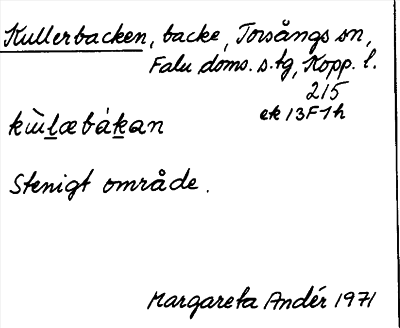 Kullerbacken, backe, Torsångs sn,
Falu doms. s. tg, Kopp. l.
215
ek 13F1h
kùlæbákan
Stenigt område.
Margareta Andér 1971